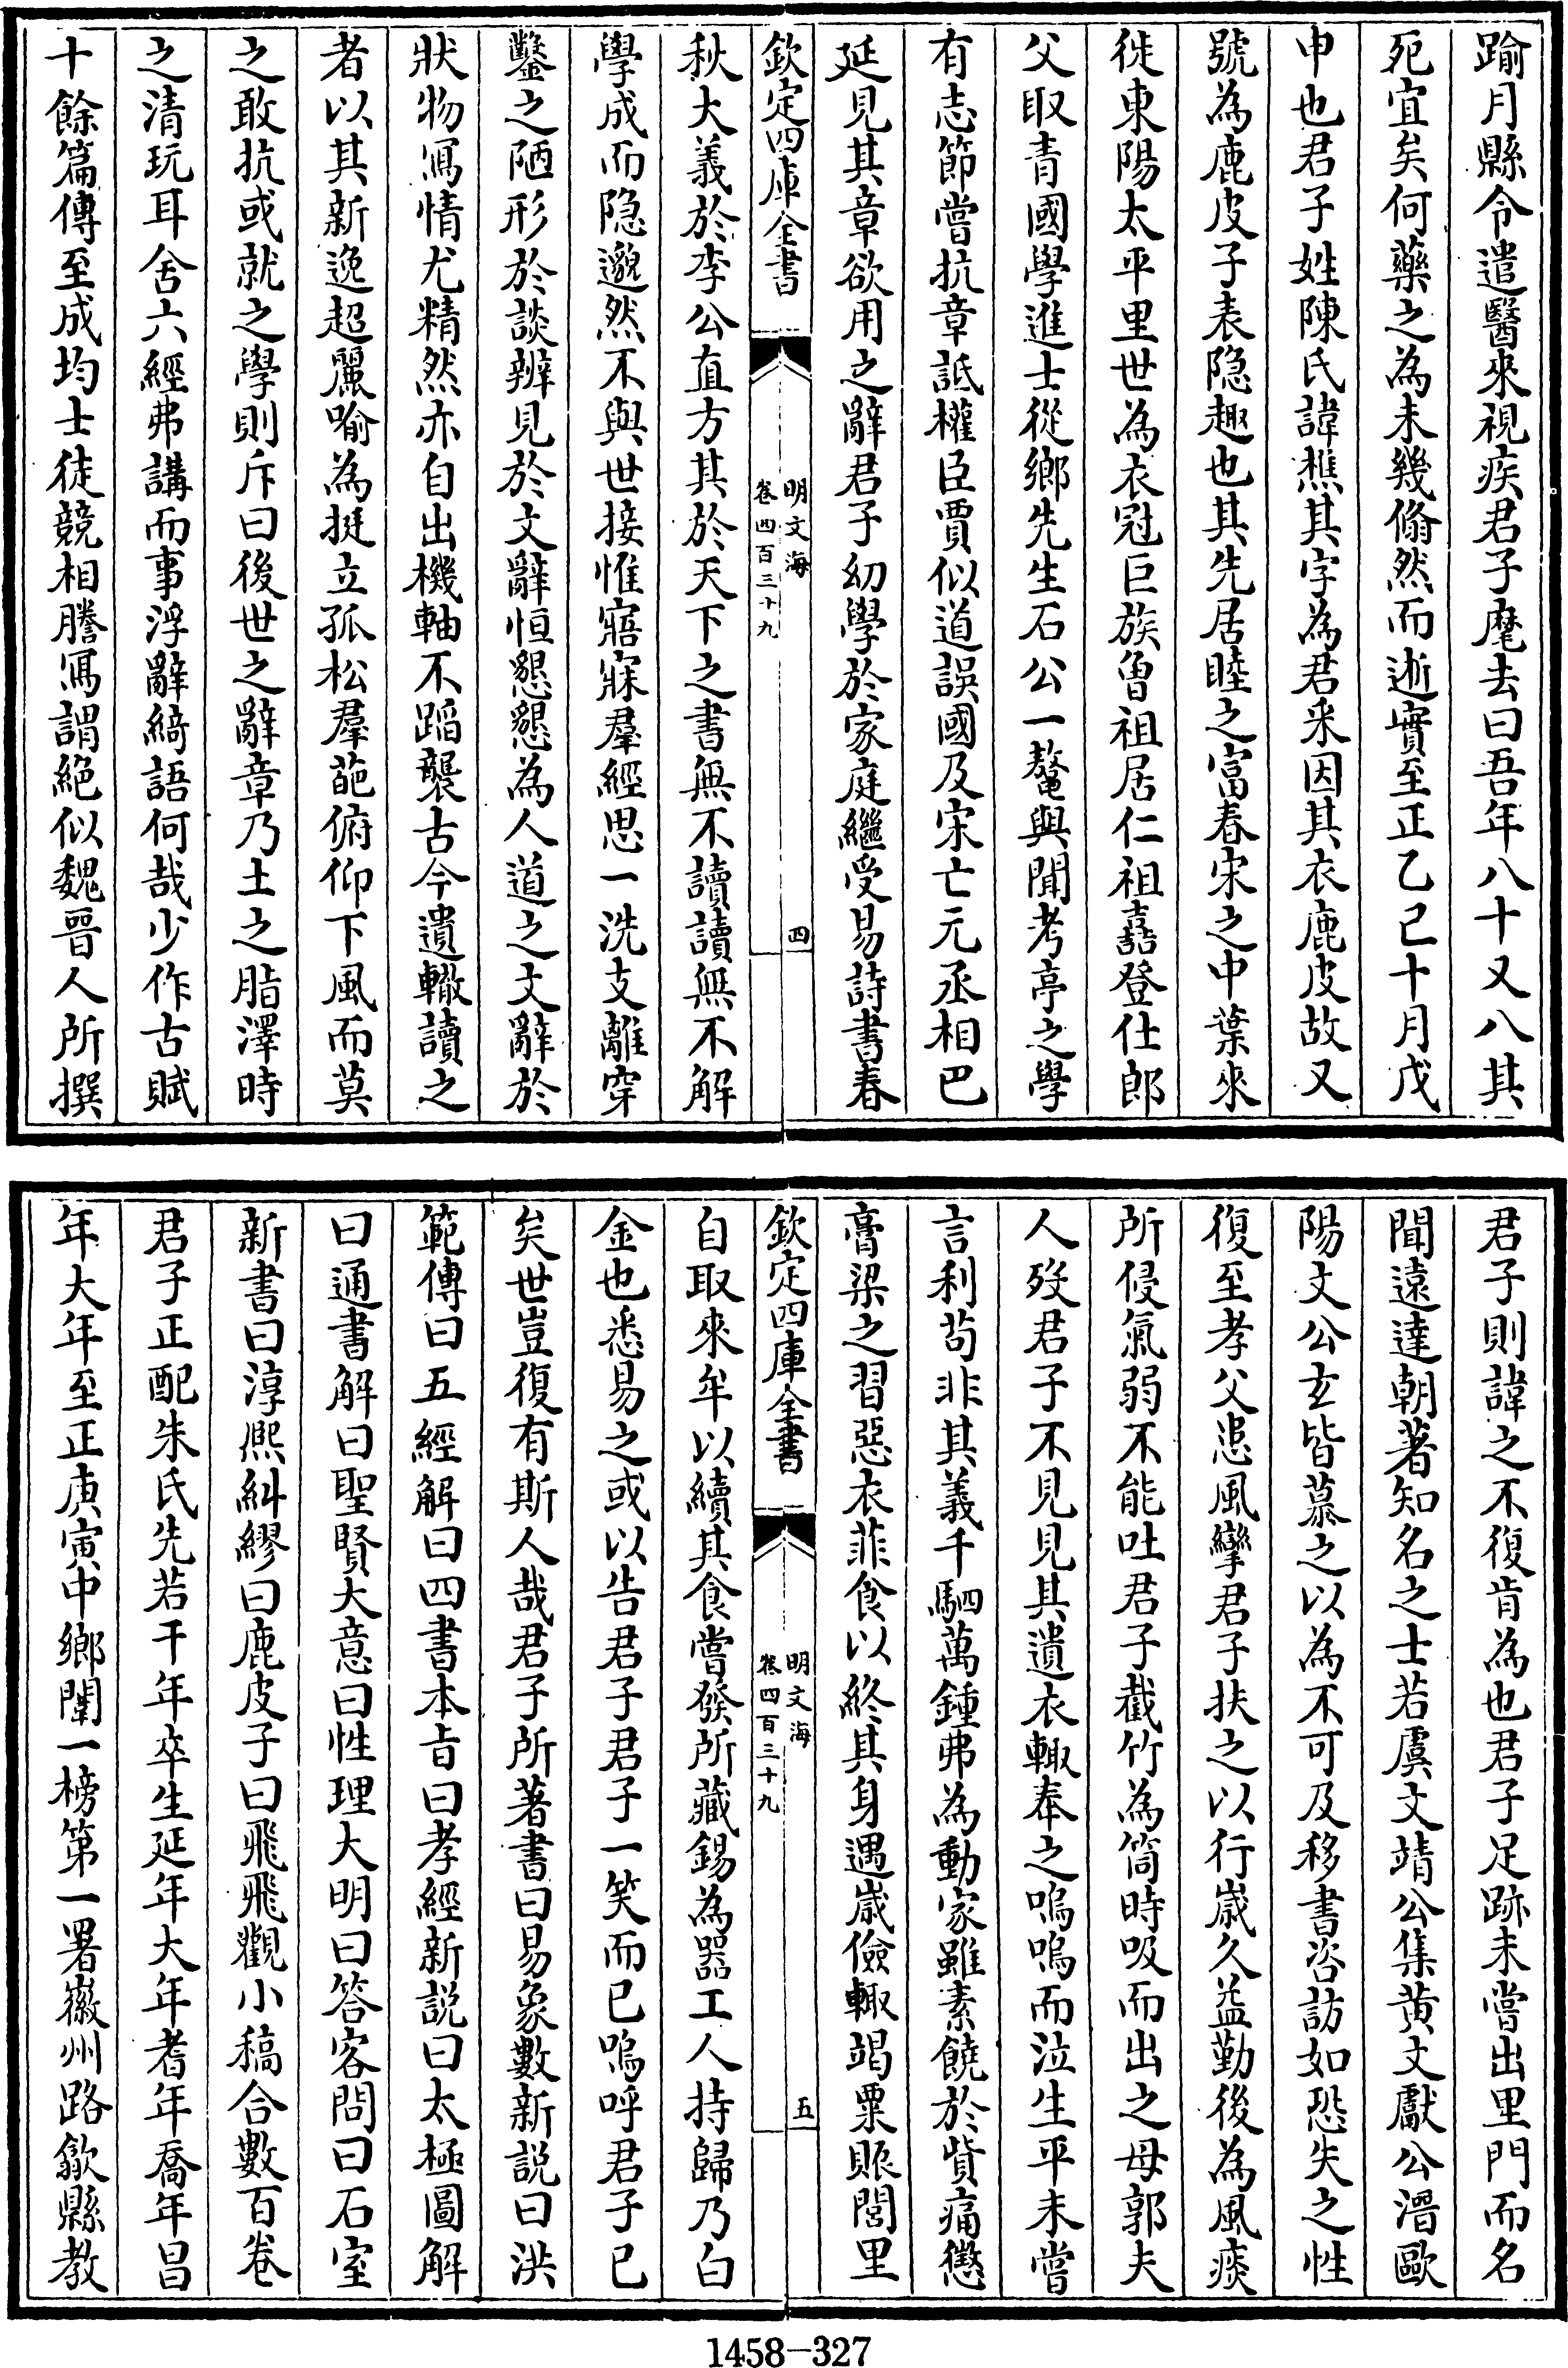 踰月縣令遣醫來視疾君子麾去曰吾年八十又八其
死宜矣何藥之為未幾翛然而逝實至正乙巳十月戊
申也君子姓陳氏諱樵其字為君采因其衣鹿皮故又
號為鹿皮子表隠趣也其先居睦之富春宋之中葉來
徙東陽太平里世為衣冠巨族曾祖居仁祖嘉登仕郎
父取青國學進士從鄉先生石公一鼇與聞考亭之學
有志節嘗抗章詆權臣賈似道誤國及宋亡元丞相巴
延見其章欲用之辭君子幼學於家庭繼受易詩書春
欽定四庫全書
明文海
卷四百三十九
四
秋大義於李公直方其於天下之書無不讀讀無不解
學成而隠邈然不與世接惟寤寐羣經思一洗支離穿
鑿之陋形於談辨見於文辭恒懇懇為人道之文辭於
狀物寫情尤精然亦自出機軸不蹈襲古今遺轍讀之
者以其新逸超麗喻為挺立孤松羣葩俯仰下風而莫
之敢抗或就之學則斥曰後世之辭章乃土之脂澤時
之清玩耳舍六經弗講而事浮辭綺語何哉少作古賦
十餘篇傳至成均士徒競相謄寫謂絶似魏晉人所撰
君子則諱之不復肯為也君子足跡未嘗出里門而名
聞遠達朝著知名之士若虞文靖公集黄文獻公溍歐
陽文公玄皆慕之以為不可及移書咨訪如恐失之性
復至孝父患風攣君子扶之以行嵗久益勤後為風痰
所侵氣弱不能吐君子截竹為筒時吸而出之母郭夫
人歿君子不見見其遺衣輙奉之嗚嗚而泣生平未嘗
言利茍非其義千駟萬鍾弗為動家雖素饒於貲痛懲
膏粱之習惡衣菲食以終其身遇嵗儉輙竭粟賑閭里
欽定四庫全書
明文海
卷四百三十九
五
自取來牟以續其食嘗發所藏錫為器工人持歸乃白
金也悉易之或以告君子君子一笑而已嗚呼君子已
矣世豈復有斯人哉君子所著書曰易象數新説曰洪
範傳曰五經解曰四書本旨曰孝經新説曰太極圖解
曰通書解曰聖賢大意曰性理大明曰答客問曰石室
新書曰淳熙糾繆曰鹿皮子曰飛飛觀小稿合數百卷
君子正配朱氏先若干年卒生延年大年耆年喬年昌
年大年至正庚寅中鄉闈一榜第一署徽州路歙縣教
1458-327